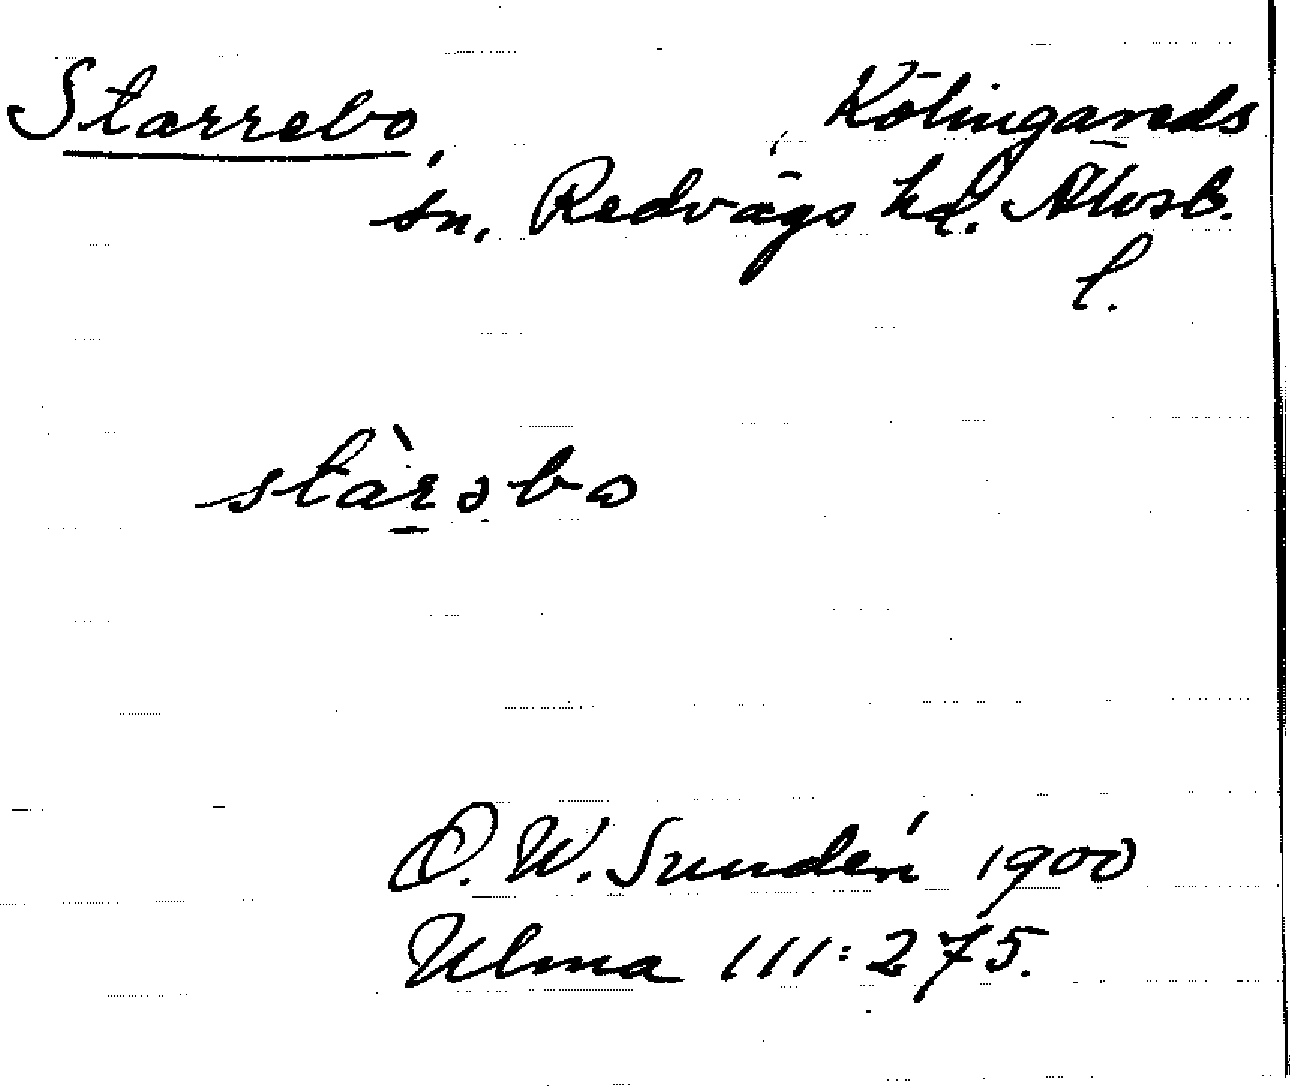 Starrebo, Kölingareds
sn. Redvägs hd. Älvsb.
l.
stàrəbo
O. W. Sundén 1900
Ulma 111:275.